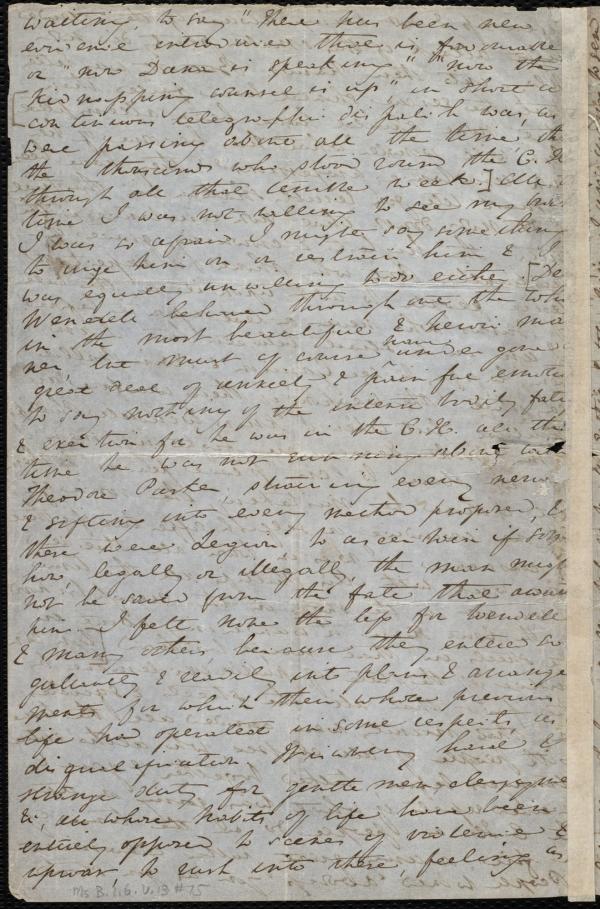 waiting, to say "There has been new
evidence introduced there is favorable
or "now Dana is speaking," "now the
[kidnapping counsel is up" in short a
continuous telegraphic dispatch was, as
were passing about all the time
the thousands who stood round the C. H.
through all that terrible week.] All
time I was not willing to see my
I was so afraid I might say something
to urge him on or restrain him & I
was equally unwilling to do either. [
Wendell behaved throughout the
in the most beautiful & heroic
ner but must of course have under gone
great deal of anxiety & painful
to say nothing of the intense bodily
& exertion for he was in the C. H. all the
time he was not running about with
Theodore Parker, straining every nerve
& sifting into every method proposed, &
there were Legion, to ascertain if some
how, legally or illegally, the man might
not be saved from the fate that
him. I felt none the less for Wendell
& many others, because they entered so
gallantly & readily into plans & arrange
ments for which their whole previous
life had operated in some respects, as
disqualification. It is a very hard &
strange duty for gentlemen, clergymen
&c, all whose habits of life have been
entirely opposed to scenes of violence &
uproar, to rush into these, feeling, as
Ms B.1.6 V.13 #75